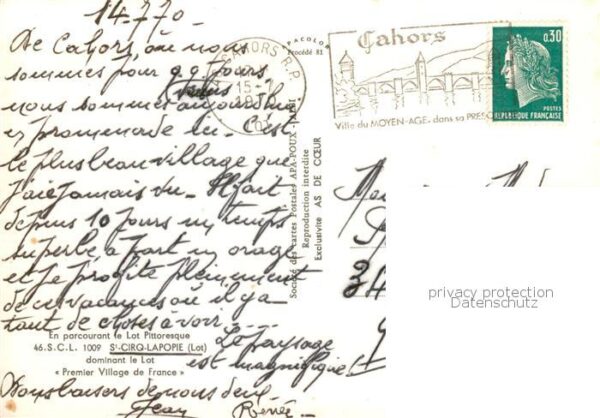 14.7.70.
De Cahors, où nous
sommes pour qq jours
nous sommes aujourd'hui
en promenade ici. C'est
le plus beau village que
j'aie jamais vu. Il fait
depuis 10 jours un temps
superbe, à part un orage
et je profite pleinement
de ces vacances où il y a
tant de choses à voir.
Le paysage
est magnifique!
En parcourant le Lot Pittoresque
46.S.C.L. 1009 St-CIRQ-LAPOPIE (Lot)
dominant le Lot
« Premier Village de France »
Bons baisers de nous deux.
Jean Renée
CAHORS R.P.
15-7
LOT
PACOLOR
Procédé 81
Société des cartes Postales APA-POUX - ALBI
Reproduction interdite
Exclusivité AS DE CŒUR
Cahors
Ville du MOYEN-AGE. dans sa PRESQ
0,30
POSTES
REPUBLIQUE FRANÇAISE
34
privacy protection
Datenschutz